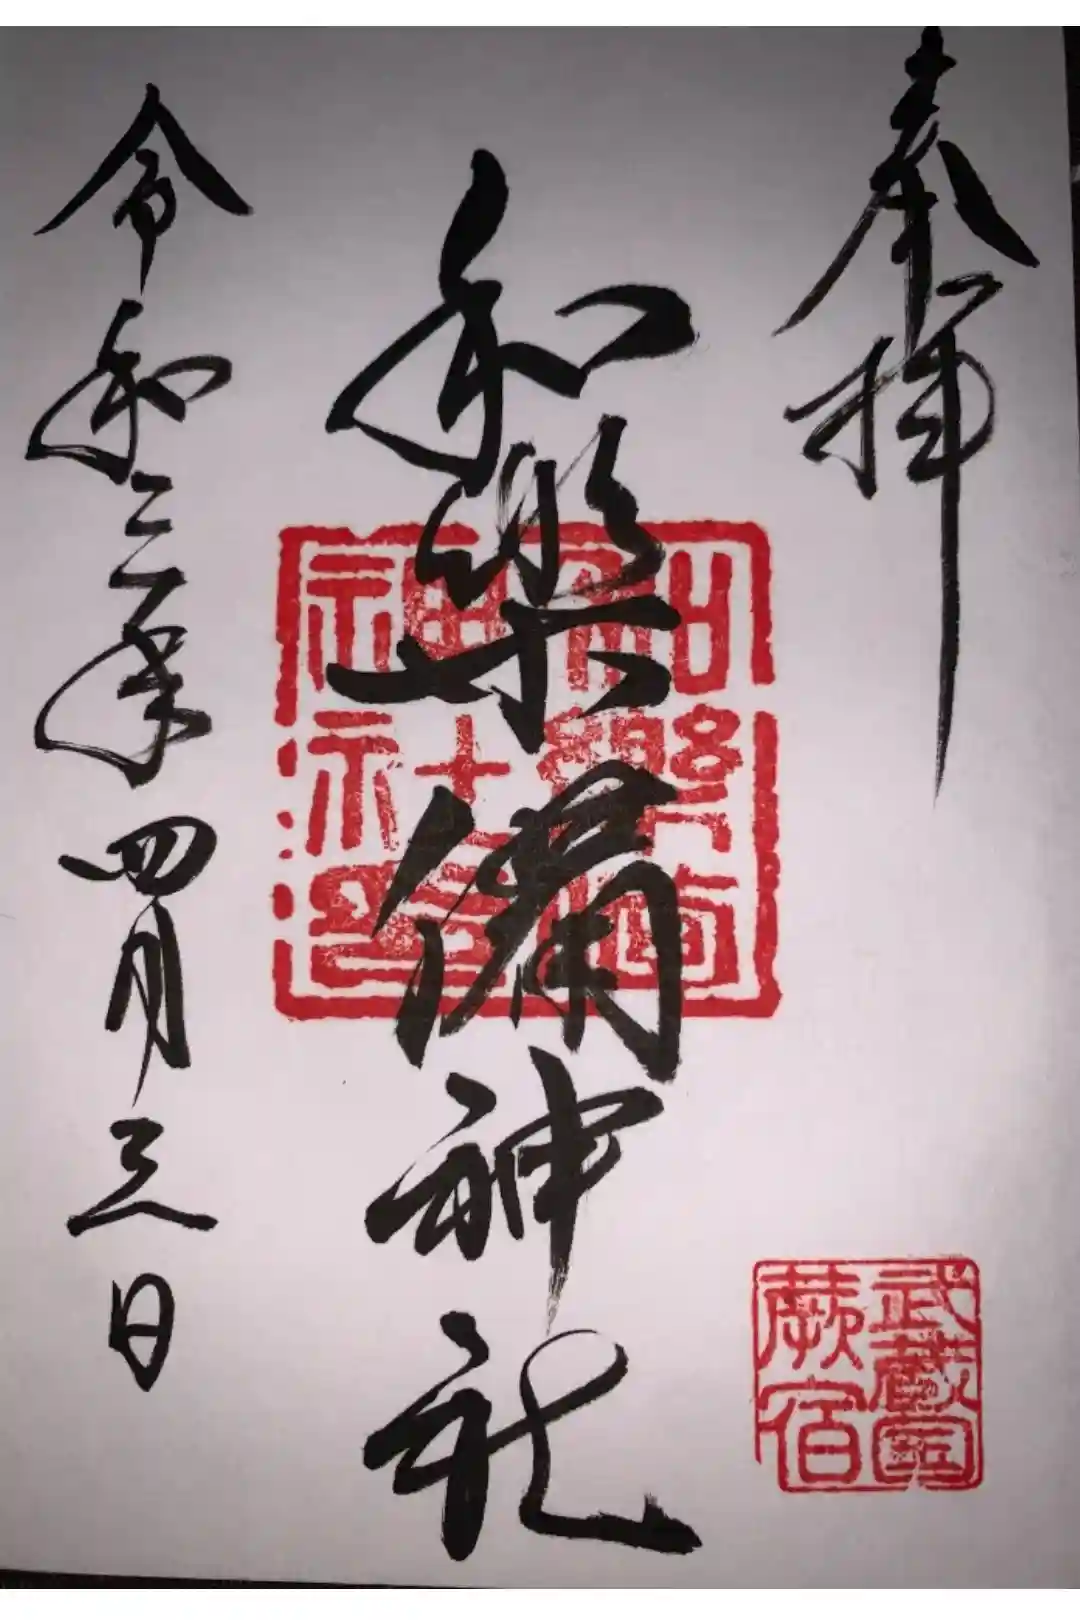 奉拝
和樂備神社
令和二年四月三日
和樂備神社
武蔵国
蕨宿